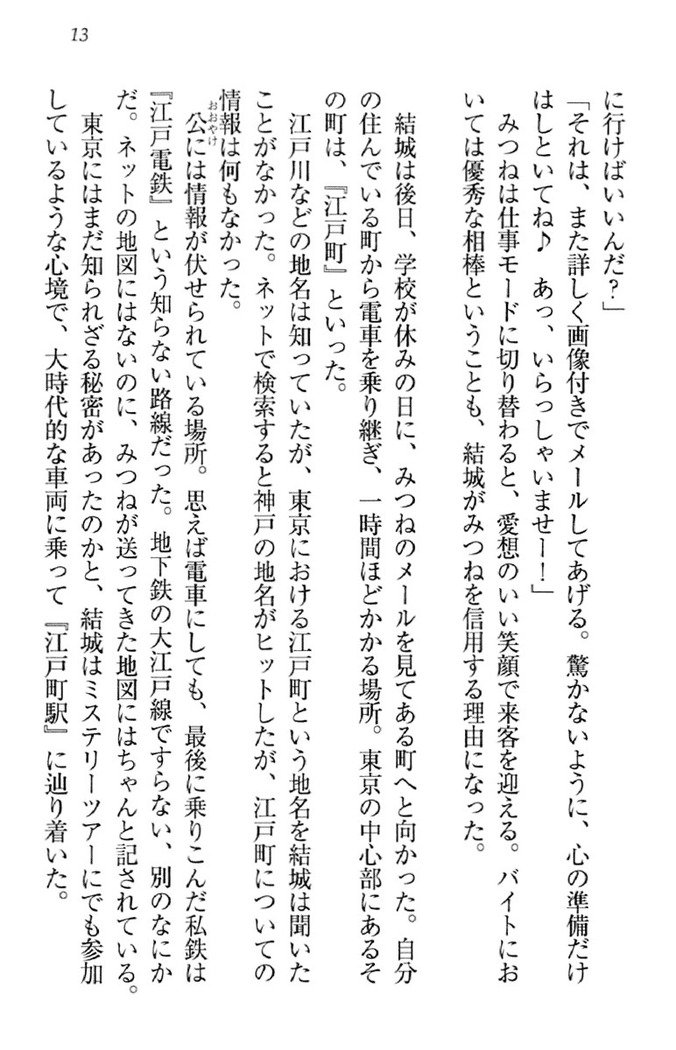 13
に行けばいいんだ？」
「それは、また詳しく画像付きでメールしてあげる。驚かないように、心の準備だけ
はしといてね♪　あっ、いらっしゃいませー！」
みつねは仕事モードに切り替わると、愛想のいい笑顔で来客を迎える。バイトにお
いては優秀な相棒ということも、結城がみつねを信用する理由になった。
結城は後日、学校が休みの日に、みつねのメールを見てある町へと向かった。自分
の住んでいる町から電車を乗り継ぎ、一時間ほどかかる場所。東京の中心部にあるそ
の町は、『江戸町』といった。
江戸川などの地名は知っていたが、東京における江戸町という地名を結城は聞いた
ことがなかった。ネットで検索すると神戸の地名がヒットしたが、江戸町についての
情報は何もなかった。
公おおやけには情報が伏せられている場所。思えば電車にしても、最後に乗りこんだ私鉄は
『江戸電鉄』という知らない路線だった。地下鉄の大江戸線ですらない、別のなにか
だ。ネットの地図にはないのに、みつねが送ってきた地図にはちゃんと記されている。
東京にはまだ知られざる秘密があったのかと、結城はミステリーツアーにでも参加
しているような心境で、大時代的な車両に乗って『江戸町駅』に辿り着いた。